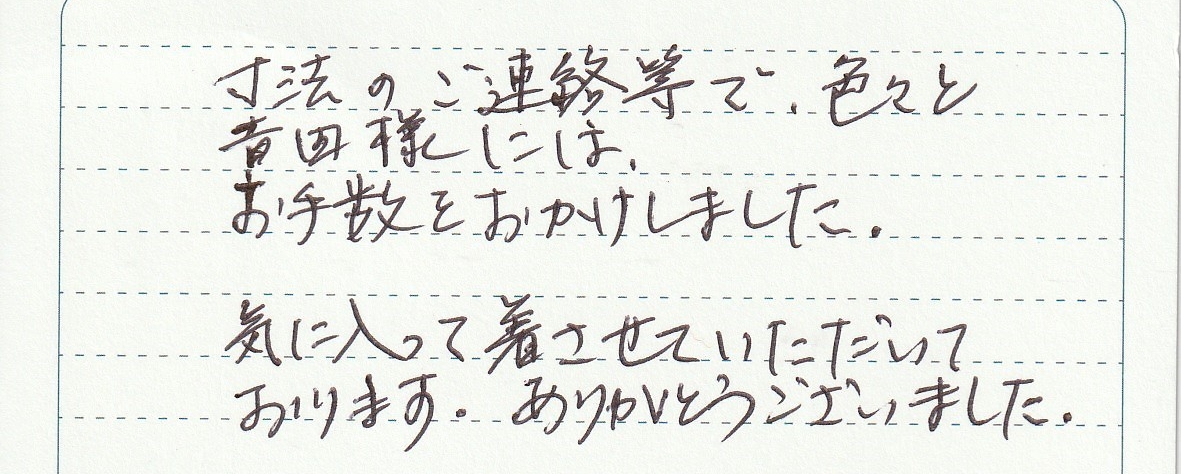 寸法のご連絡等で、色々と
吉田様には、
お手数をおかけしました。
気に入って着させていただいて
おります。ありがとうございました。